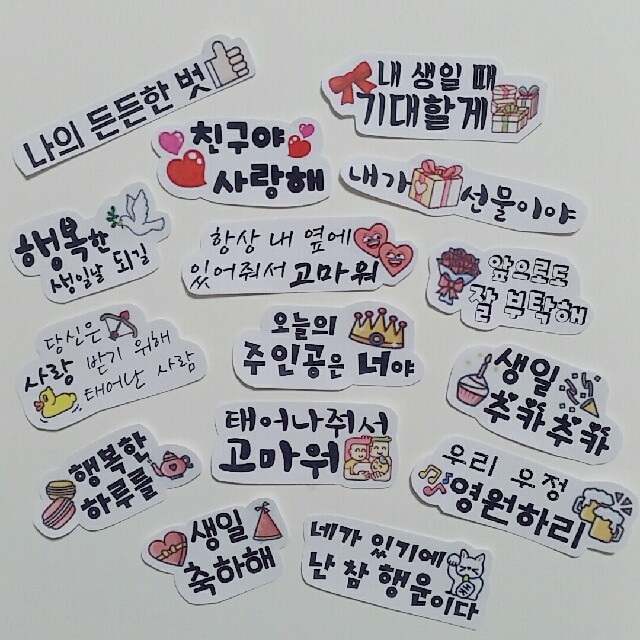 나의 든든한 벗
내 생일 때
기대할게
친구야
사랑해
내가 선물이야
행복한
생일날 되길
항상 내 옆에
있어줘서 고마워
앞으로도
잘 부탁해
당신은
사랑 받기 위해
태어난 사람
오늘의
주인공은 너야
생일
추카추카
태어나줘서
고마워
행복한
하루를
우리 우정
영원하리
생일
축하해
네가 있기에
난 참 행운이다